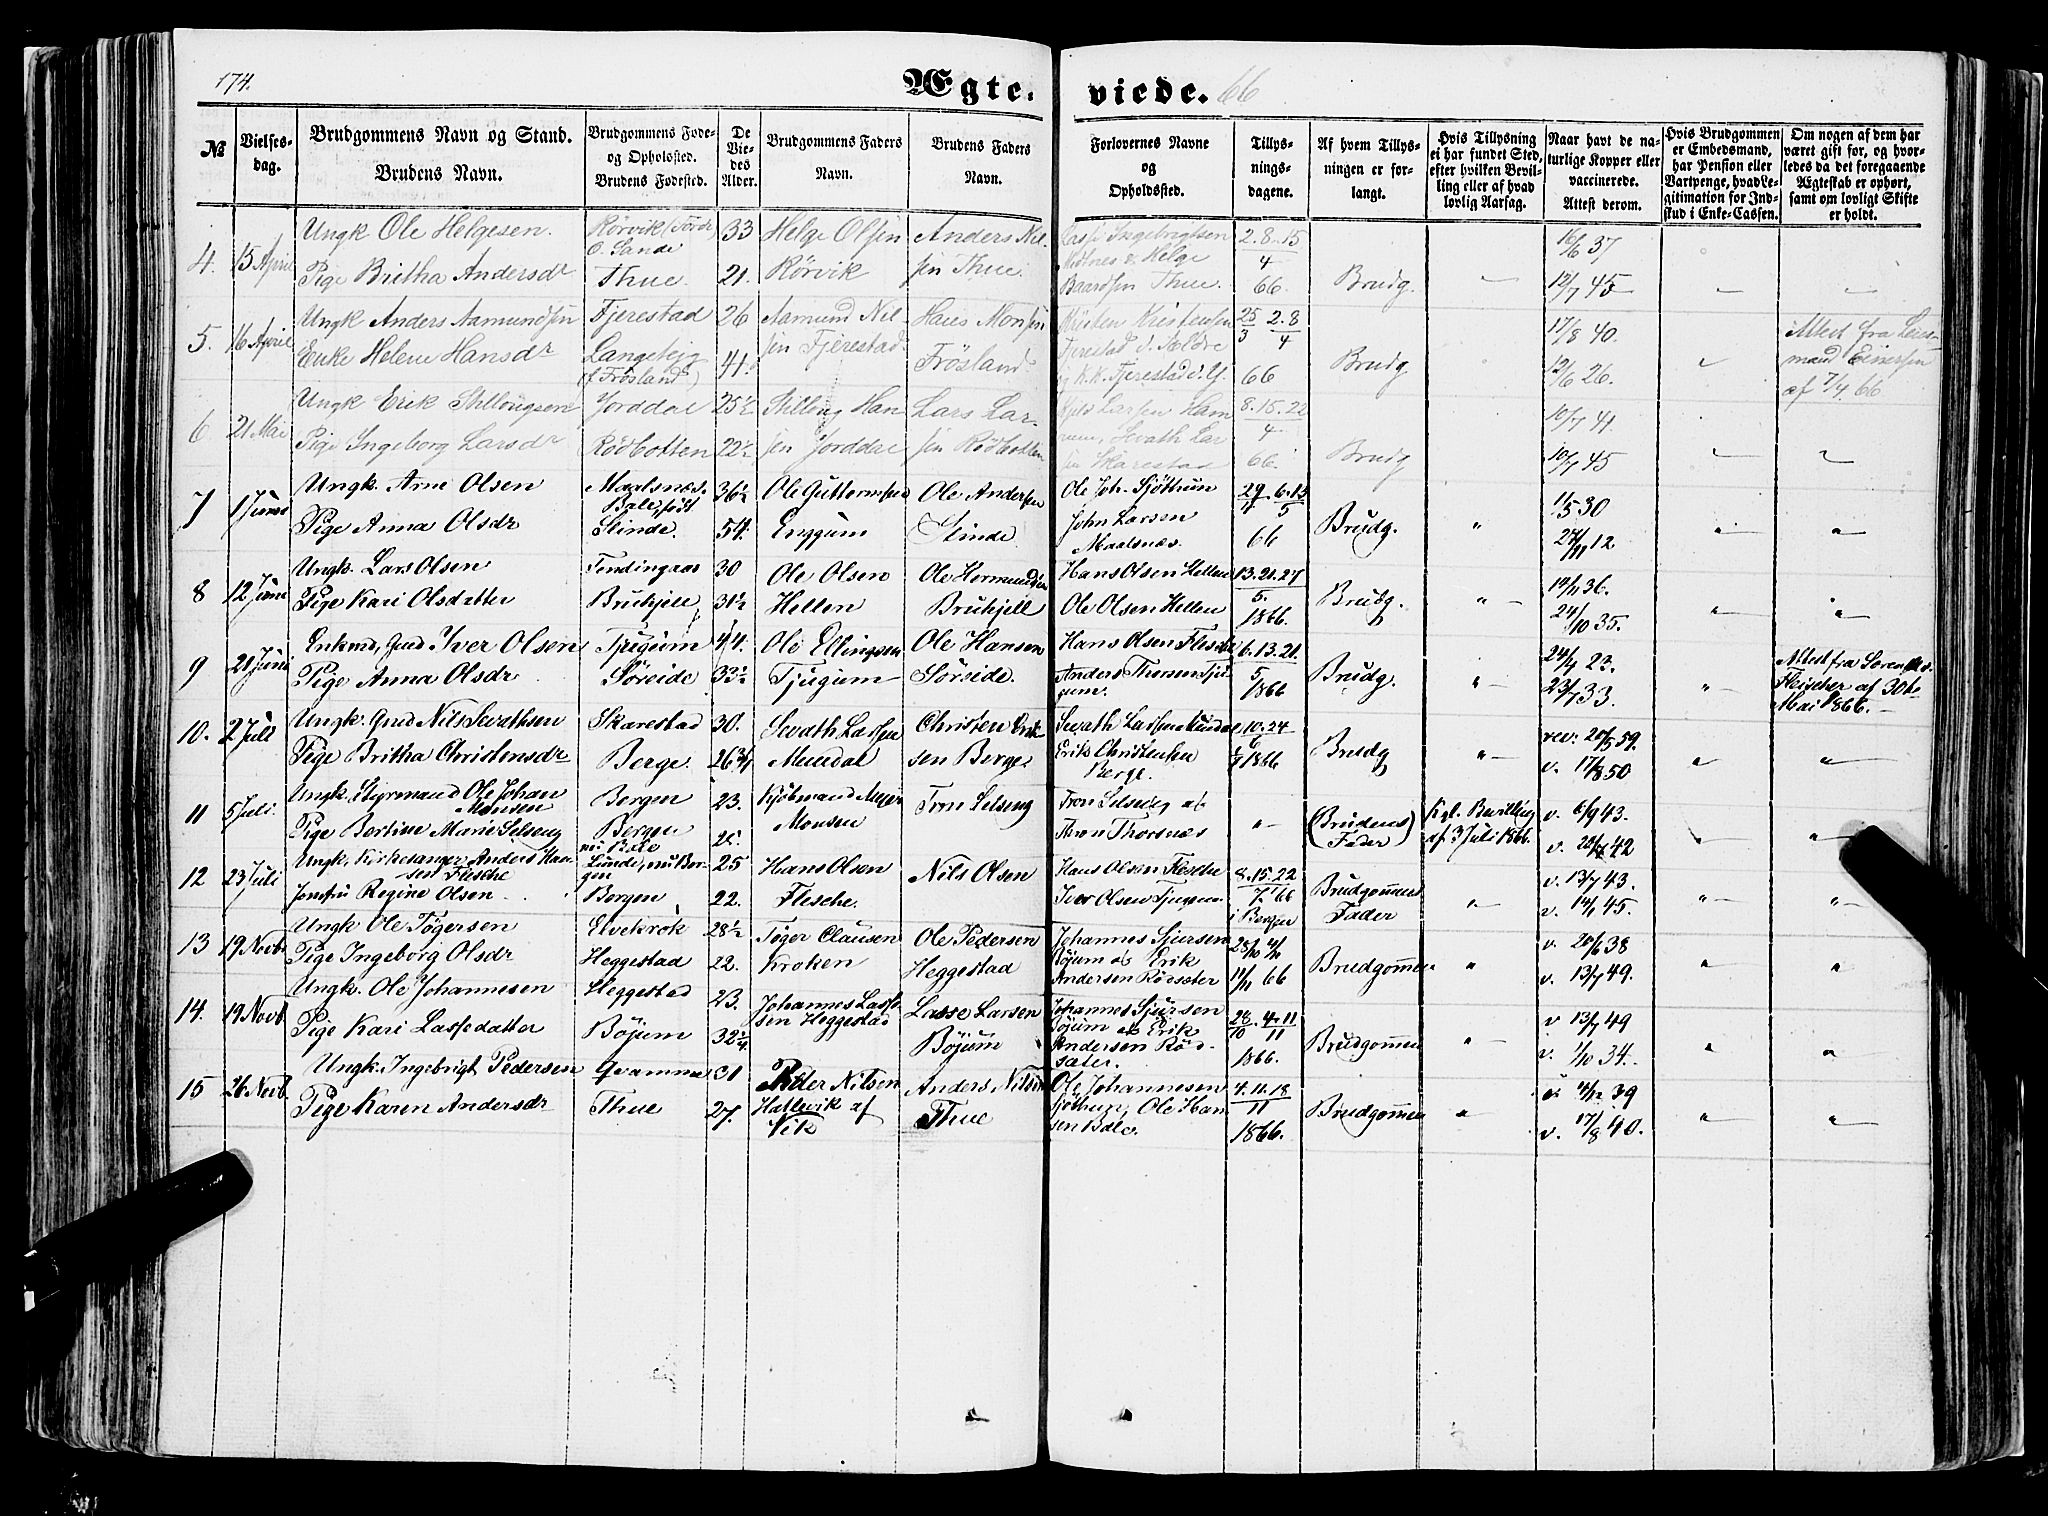 174.
Ægte- viede. 66
№
Vielses-
dag.
Brudgommens Navn og Stand.
Brudens Navn.
Brudgommens Føde-
og Opholdsted.
Brudens Fødested.
De
Vie-
des
Alder.
Brudgommens Faders
Navn.
Brudens Faders
Navn.
Forlovernes Navne
og
Opholdssted.
Tillys-
nings-
dagene.
Af hvem Tillys-
ningen er for-
langt.
Hvis Tillysning
ei har fundet Sted,
efter hvilken Bevil-
ling eller af hvad
lovlig Aarsag.
Naar havt de na-
turlige Kopper eller
vaccinerede.
Attest derom.
Hvis Brudgommen
er Embedsmand,
har Pension eller
Vartpenge, hvad Le-
gitimation for Ind-
skud i Enke-Cassen.
Om nogen af dem har
været gift før, og hvor-
ledes da det foregaaende
Ægteskab er ophørt,
samt om lovligt Skifte
er holdt.
4. 15 April
Ungk Ole Helgesen.
Pige Britha Andersdr
Rörvik
O. Sande
Thue.
33
21.
Helge Olsen
Rörvik
Anders Nil-
sen Thue.
Lasse Ingebrigtsen
Helge
Baardsen Thue.
2. 8. 15
4
66
Brudg.
16/6 37
12/7 45
5. 16 April
Ungk Anders Aamundsen
Enke Helene Hansdr
Fjerestad
Langeteig
(f. Frösland)
26
41.
Aamund Nil-
sen Fjerestad
Hans Monsen
Frösland
Kristen Kristensen
Fjerestad d. Ældre
og K. K. Fjerestad d. Y.
25/3 2.8/4
66
Brudg
17/8 40.
12/6 26.
Attest fra Lens-
mand Einersen
af 7/4 66
6 21 Mai
Ungk Erik Stillougsen
Pige Ingeborg Larsdr
Jorddal
Rödbotten
25½
22½
Stilloug Han
sen Jorddal
Lars Lar-
sen Rödbotten
Larsen Ham
rum, Sevath Lar
sen Skarestad
8. 15. 22
4
66.
Brudg
10/7 41.
10/7 45
7 1 Juni
Ungk. Arne Olsen
Pige Anna Olsdr
Maalsnæs.
Balestrft
Slinde.
36½
54.
Ole Guttormsen
Enggum
Ole Andersen
Slinde
Ole Joh. Sjöthun
John Larsen
Maalsnæs.
29. 6. 13
5
66
Brudg.
11/5 30
27/11 12
8 12 Juni
Ungk. Lars Olsen
Pige Kari Olsdatter
Tendingaas
Bruhjell
30
31½
Ole Olsen
Hellen
Ole Hermundsen
Bruhjell
Hans Olsen Hellen
Ole Olsen Hellen
13. 21. 27
5.
1866.
Brudg.
14/11 36.
24/10 35.
9 21 Juni
Enkmd, Gmd Iver Olsen
Pige Anna Olsdr
Tjugum
Söreide
44.
33½
Ole Ellingsen
Tjugum
Ole Hansen
Söreide.
Hans Olsen Flesche
Anders Thomsen Tju
gum.
6. 13. 21.
5
1866
Brudg.
24/7 23.
23/7 33.
Attest fra Sorenskr.
Fleischer af 30te
Mai 1866.
10. 2 Juli
Ungk. Gmd Nils Sevathsen
Pige Britha Christensdr
Skarestad
Berge.
30.
26¾
Sevath Lassen
Mundal
Christen Erik
sen Berge
Sevath Lassen Mundal
Erik Christensen
Berge.
10. 24
6
1866
Brudg
rev: 20/5 59.
v. 17/8 50
11 5 Juli.
Ungk. Styrmand Ole Johan
Monsen
Pige Bertine Marie Selseng
Bergen
Bergen
nu Bale
23.
25.
Kjöbmand Meier
Monsen
Tron Selseng
Tron Selseng af
Thron Thorsnæs
(Brudens
Fader)
Kgl. Bevilling
af 3 Juli 1866.
v. 6/9 43.
v. 20/7 42
12 23 Juli
Ungk. Kirkesanger Anders Han-
sen Flesche
Jomfru Regine Olsen
Lunde, nu Ber-
gen
Bergen
25
22.
Hans Olsen
Flesche.
Nils Olsen
Hans Olsen Flesche
Iver Olsen Tjugum
8. 15. 22
7. 66
i Bergen
Brudgommens
Fader
v. 13/7 43.
v. 14/1 45.
13 19 Novb.
Ungk Ole Tögersen
Pige Ingeborg Olsdr
Elvekrok
Heggestad
28½
22.
Töger Clausen
Kroken
Ole Pedersen
Heggestad
Johannes Sjursen
Böjum og Erik
Andersen Rödseter
28/10 4/11
11/11 66
Brudgommen
v. 20/6 38
v. 13/7 49.
14. 19 Novb.
Ungk. Ole Johannesen
Pige Kari Lassedatter
Heggestad
Böjum
23.
32¼
Johannes Lasse-
sen Heggestad
Lasse Larsen
Böjum
Johannes Sjursen
Böjum og Erik
Andersen Röd-
sæter.
28. 4. 11
10 11
1866.
Brudgommen
v 13/7 49
v. 1/10 34.
15 26 Novb.
Ungk. Ingebrigt Pedersen
Pige Karen Andersdr
Qvamme
Thue
31
27.
Peder Nilsen
Hallevik af
Vik
Anders Nilsen
Thue
Ole Johannesen
Sjöthun, Ole Han
sen Bale.
4. 11. 18
11
1866.
Brudgommen
v. 4/12 39
v. 17/8 40.